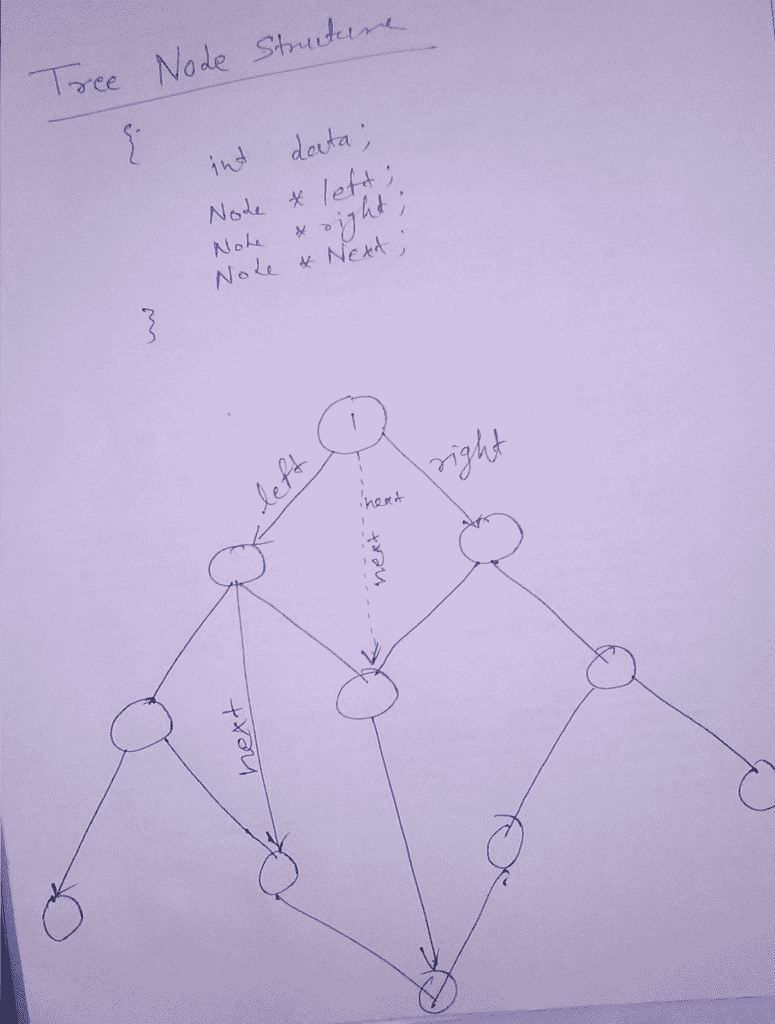 Tree Node Structure
{
int data;
Node * left;
Node * right;
Node * Next;
}
1
left
right
next
next
next